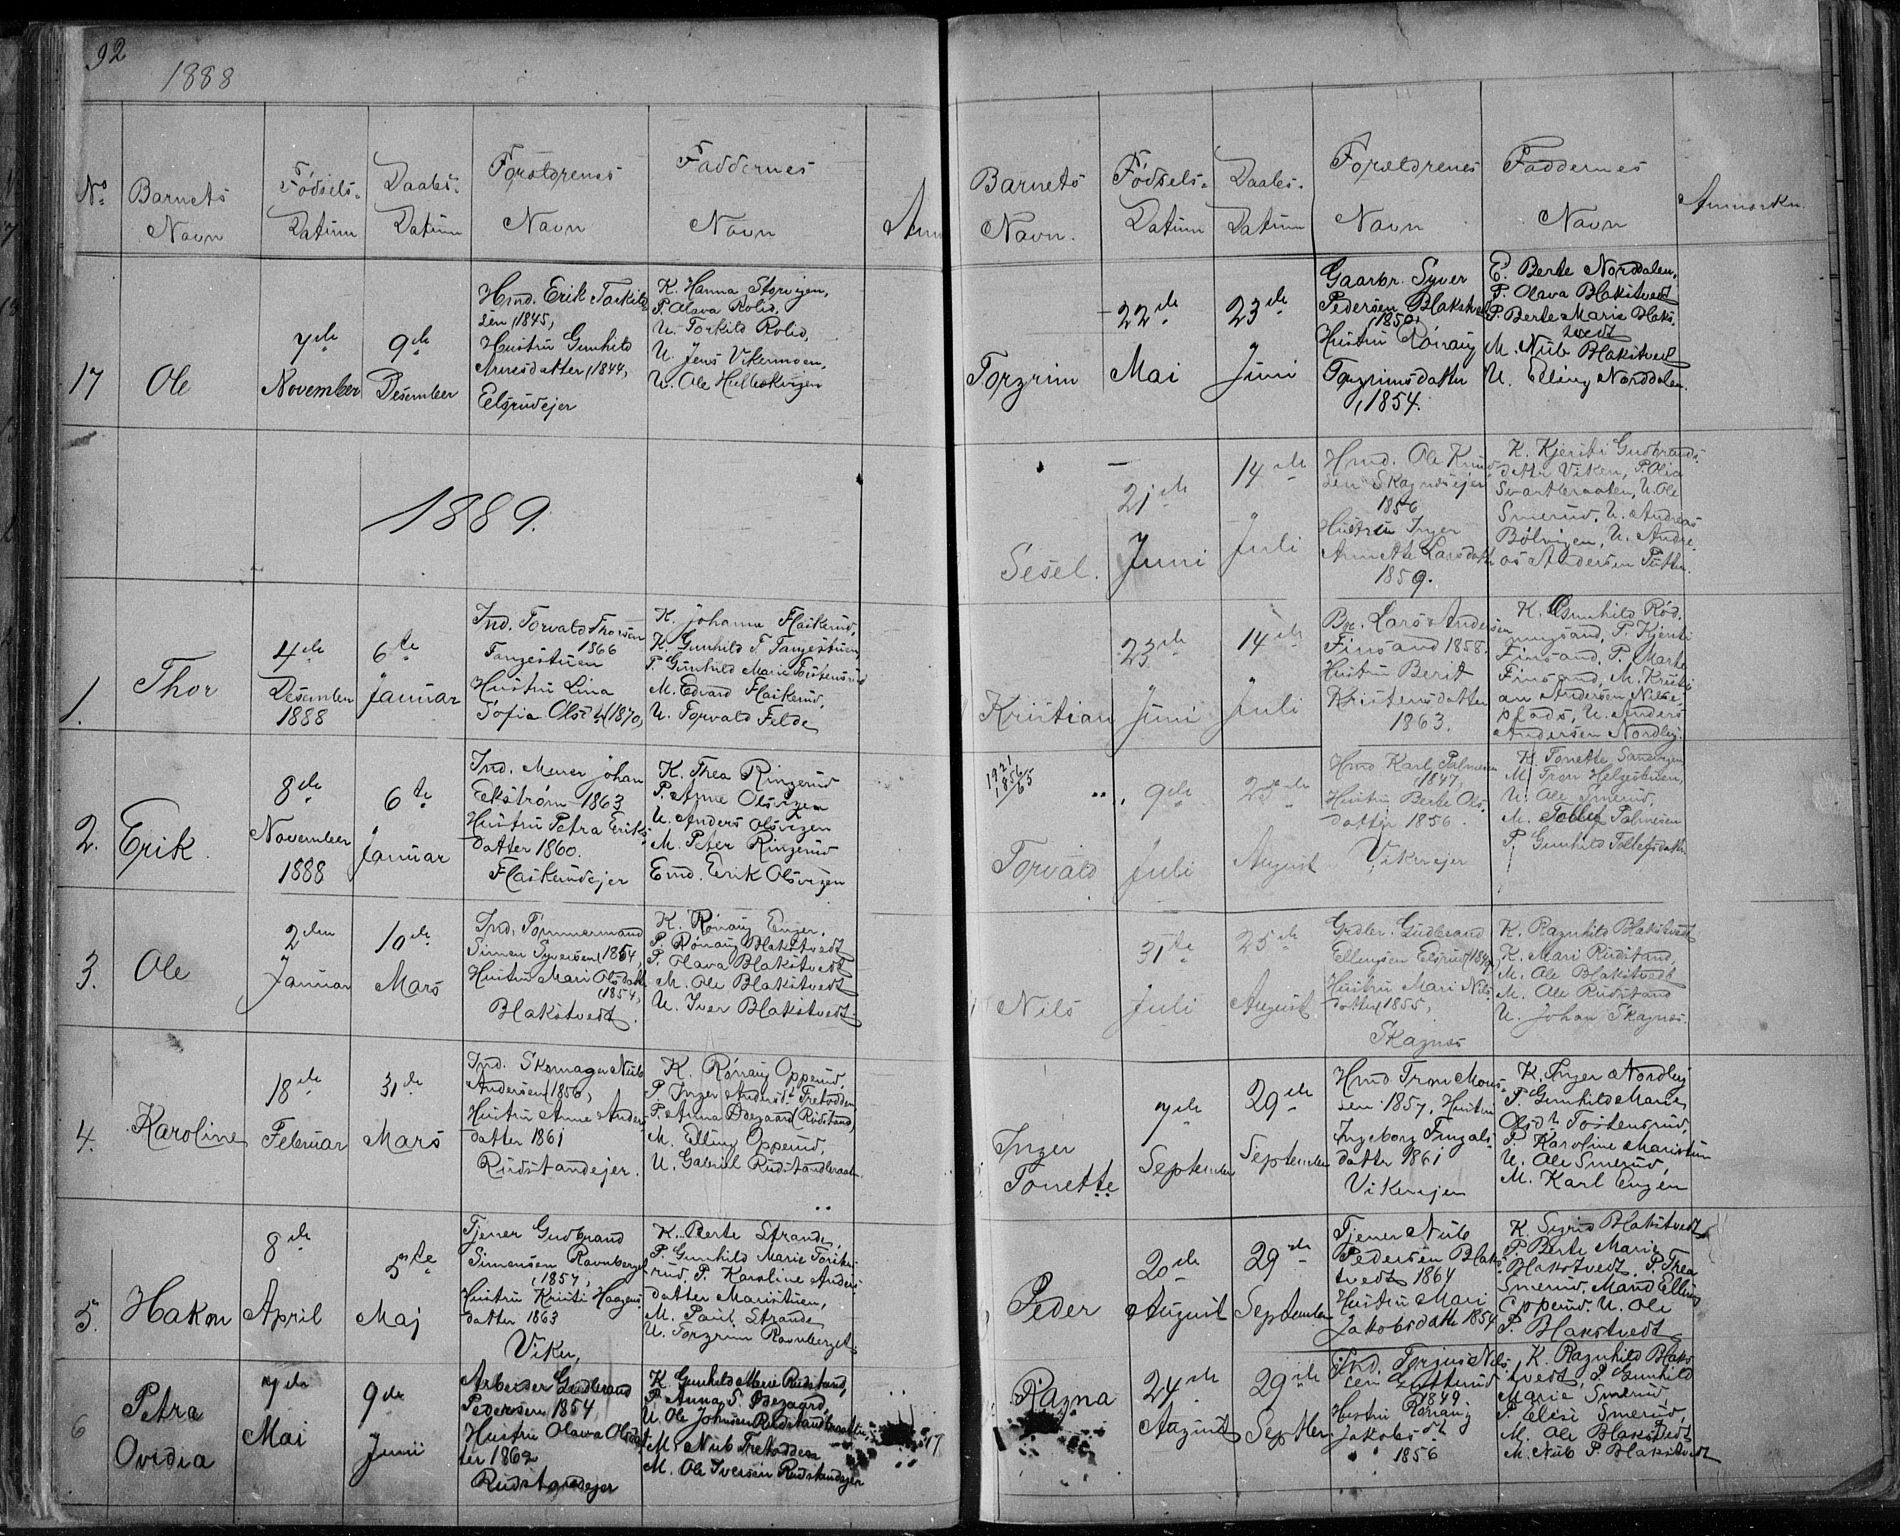 92
1888
No
Barnets
Navn
Fødsels-
Datum
Daabs-
Datum
Forældrenes
Navn
Faddernes
Navn
Anm
17
Ole
7de
November
9de
Desember
Ind. Erik Torkild
sen (1845,
Hustru Gunhild
Arnesdatter (1844,
Elsrudejer
K. Hanna Storvigen,
P. Olava Rolid,
U. Torkild Rolid,
U. Jens Vikermoen,
U. Ole Hulleskvigen
1889.
1.
Thor
4de
Desember
1888
6te
Januar
Ind. Torvald Thorsen
1866
Tangestuen
Hustru Lina
Sofia Olsdt (1870,
K. Johanne Flaskerud,
K. Gunhild T Tangestuen
P. Gunhild Marie Tostensrud
M. Edvard Flaskerud,
U. Torvald Felde
2.
Erik.
8de
November
1888
6te
Januar
Ind. Murer Johan
Eckstrøm 1863
Hustru Petra Eriks
datter 1860.
Flaskerudejer
K. Thea Ringerud
P. Anne Olsvigen
U. Anders Olsvigen
M. Peter Ringerud
Emd. Erik Olsvigen
3.
Ole
2den
Januar
10de
Mars
Ind. Tømmermand
Simen Syversen (1854,
Hustru Mari Olsdatt
(1854,
Blakstvedt.
K. Rønaug Enger.
P. Rønaug Blakstvedt
P. Olava Blakstvedt
M. Ole Blakstvedt
U. Iver Blakstvedt.
4.
Karoline
18de
Februar
31de
Mars
Ind. Skomager Nils
Andersen (1856,
Hustru Anne Anders
datter 1861
Rudstandejer.
K. Rønaug Opperud,
P. Inger Andersdt Tretodden
P. Anna Ødegaard (Rudstand,
M. Elling Opperud,
U. Gabriel Rudstandbraaten
5.
Hakon
8de
April
5te
Maj
Tjener Gudbrand
Simensen Ravnberget
(1857,
Hustru Kristi Haagens
datter 1863
Viker,
K. Berte Strande,
P. Gunhild Marie Torsten
rud, P. Karoline Anders
datter Maristuen,
M. Paul Strande
U. Torgrim Ravnberget
6
Petra
Ovidia
7de
Mai
9de
Juni
Arbeider Gudbrand
Pedersen 1854
Hustru Olava Olsdat
ter 1862
Rudstandejer
K. Gunhild Marie Rudstand,
P. Anna S. Ødegaard,
U. Ole Johnsen Rudstandbraaten
M. Nils Tretodden
M. Ole Iversen Rudstandejer
Barnets
Navn.
Fødsels-
Datum
Daabs-
Datum
Forældrenes
Navn
Faddernes
Navn
Anmærkn.
Torgrim
22de
Mai
23de
Juni
Gaarbr. Syver
Pedersen Blakstvedt
(1850,
Hustru Rønaug
Torgrimsdatter
(1854.
E. Berte Norddalen,
P. Olava Blakstvedt
P. Berte Marie Blaks-
tvedt
M. Nils Blakstvedt
U. Elling Norddalen.
Sesel.
21de
Juni
14de
Juli
Hmd. Ole Knud-
sen Skagnæsejer
1856
Hustru Inger
Annette Larsdatter
1859.
K. Kjersti Gudbrands-
datter Viken, P. Olia
Svartbraaten, U. Ole
Smerud, U. Andreas
Bølvigen, U. Andre-
as Andersen Putten.
Kristian
23de
Juni
14de
Juli
Bye. Lars Andersen
Finsand 1858.
Hustru Berit
Kristensdatter
1863.
K. Gunhild Rød
ningsand, P. Kjersti
Finsand, P. Marte
Finsand, M. Kristi
an Andersen Nilse
plads, U. Anders
Andersen Nordlej.
Torvald
9de
Juli
25de
August
Hmd Karl Palmesen
1847,
Hustru Berte Ols-
datter 1856.
Vikerejer
K. Tonette Sandvigen,
M. Tron Helgestuen,
U. Ole Smerud,
M. Tollef Palmesen
P. Gunhild Tollefsdatter
Nils
31te
Juli
25de
August
Grdbr. Gudbrand
Ellingsen Elsrud (1849
Hustru Mari Nils-
datter (1855,
Skagnæs
K. Ragnhild Blakstvedt
K. Mari Rudstand,
M. Ole Blakstvedt
M. Ole Rudstand
U. Johan Skagnæs.
Inger
Tonette
7de
September
29de
September
Hmd Tron Mons-
sen 1857, Hustru
Ingeborg Fingals-
datter 1861
Vikerejer
K. Inger Nordlej
P. Gunhild Marie
Olsdt Tostensrud,
P. Karoline Maristuen
U. Ole Smerud,
M. Karl Engen
Peder
20de
August
29de
September
Tjener Nils
Pedersen Blaks
tvedt 1864
Hustru Mari
Jakobsdatt 1854
K. Sigrid Blakstvedt
P. Berte Marie
Blakstvedt. P. Thea
Smerud, Mand Elling
Opperud. U. Ole
P. Blakstvedt
Ragna
24de
August
29de
Septber
Ind. Torjus Nils
sen
1849
Hustru Rønaug
Jakobsdt
1856
K. Ragnhild Blaks
tvedt, P. Gunhild
Marie Smerud
P. Elisi Smerud,
M. Ole Blakstvedt
M. Nils P. Blakstvedt